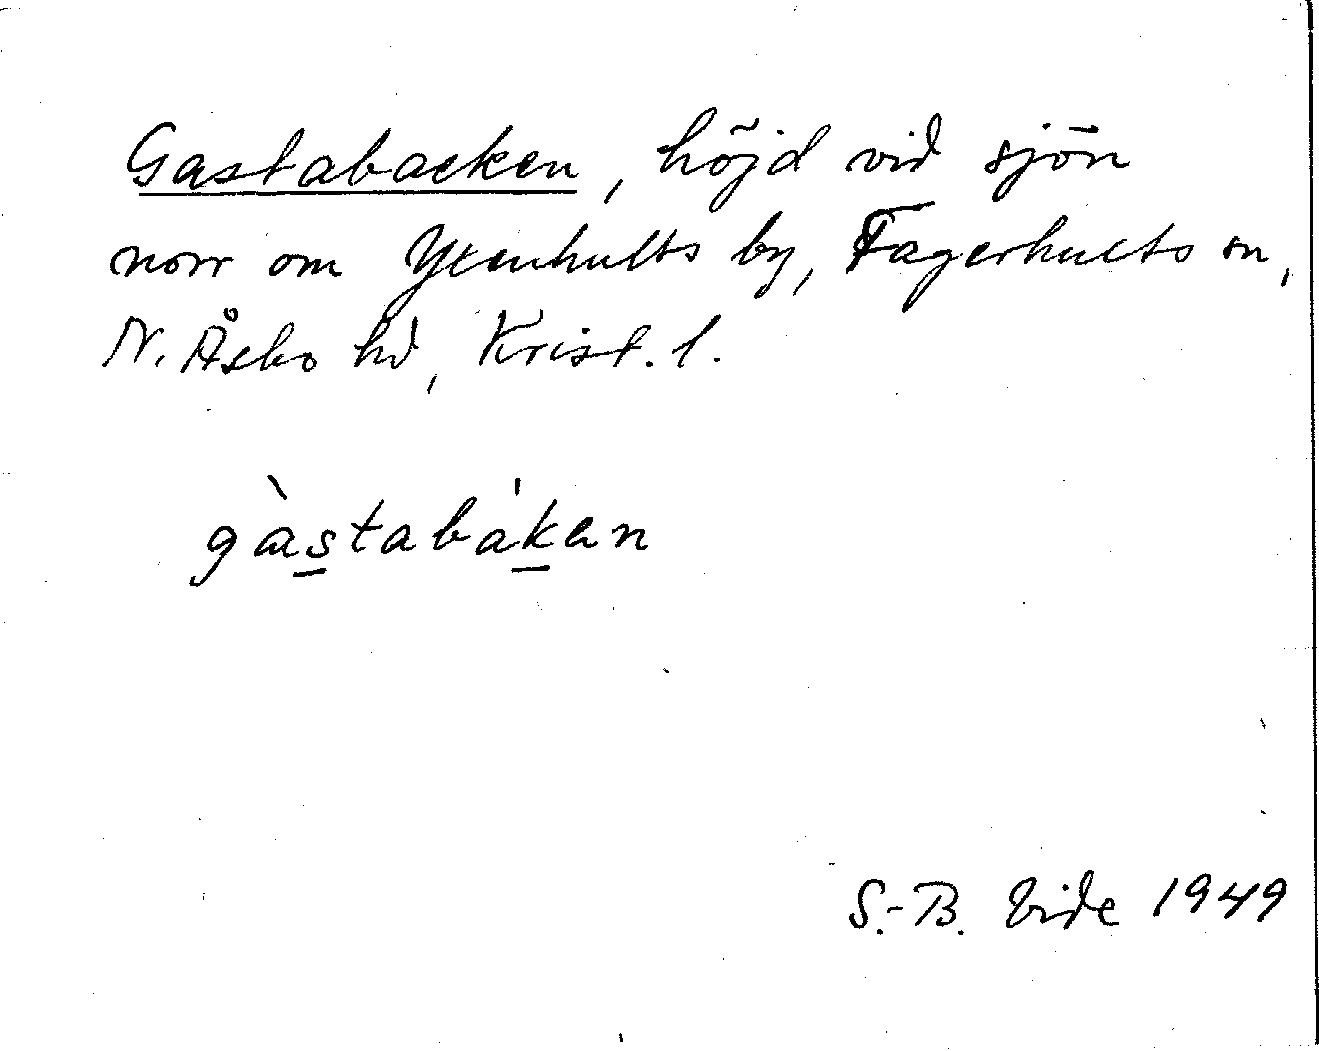 Gastabacken, höjd vid sjön
norr om Yxenhults by, Fagerhults sn,
N. Åsbo hd, Krist. l.
gàstabáken
S.-B. Vide 1949